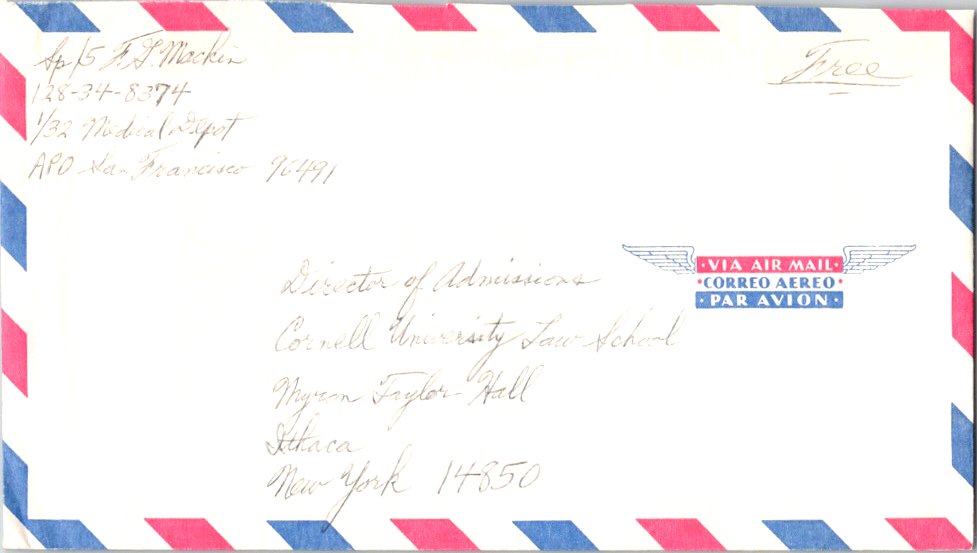 Sp/5 F. G. Mackin
Free
128-34-8374
1/32 Medical Depot
APO San Francisco 96491
VIA AIR MAIL
CORREO AEREO
PAR AVION
Director of Admissions
Cornell University Law School
Myron Taylor Hall
Ithaca
New York 14850